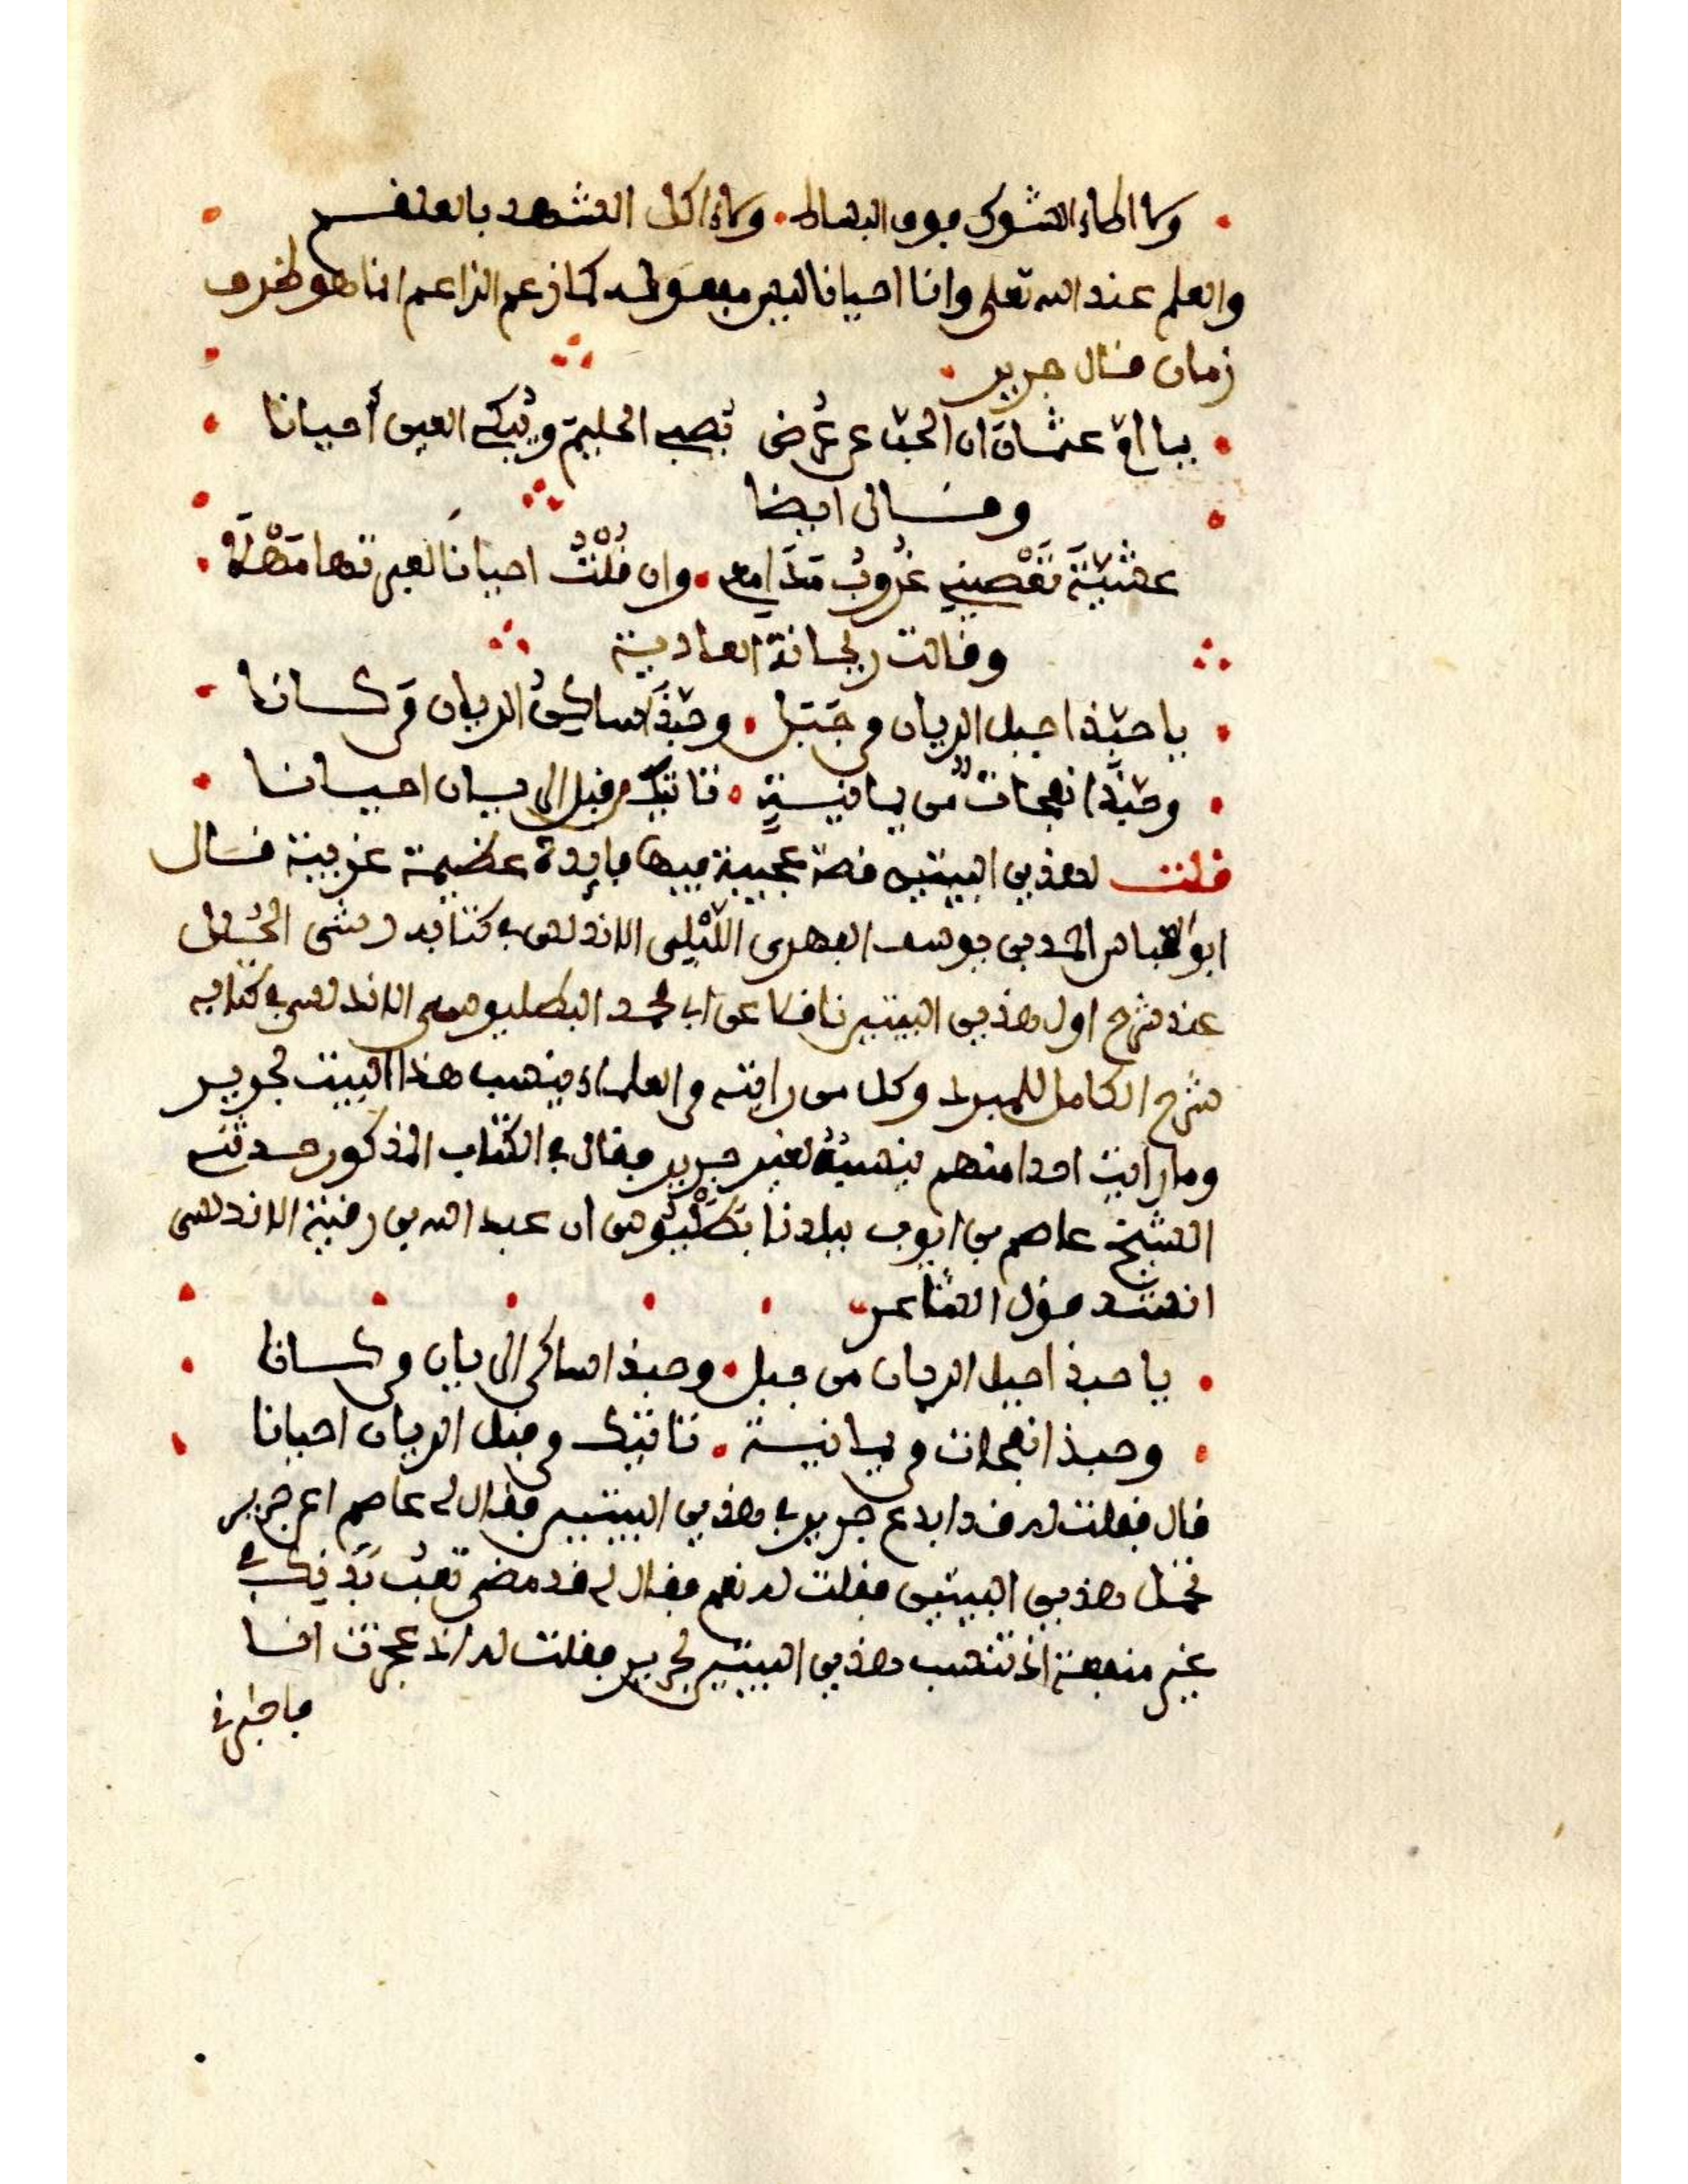 ولا الماء الشوك فوق البساط ولا اكل الشهد بالعلقم
والعلم عند الله تعلى وانا احيانا ليس مفعوله كما زعم الزاعم انما هو ظرف
زمان قال جرير
يا ام عثمان ان الحب عن عُرُض يُصبي الحليم ويُبكي العين أحيانا
وقال ايضا
عشيّة تَعْصيني غُروبُ مَدامعي وان قُلْتُ احيانا لعيني تها مَهْلَا
وقالت ريحانة العادية
يا حبّذا جبل الريان من جَبَل وحَبّذا ساكنُ الريان مَن كانا
وحبّذا نفحاتٌ من يمانيةٍ تاتيك من قبل الريان احيانا
قلت لهذين البيتين قصة عجيبة فيها فايدة عظيمة غريبة قال
ابو العباس احمد بن يوسف الفهري اللَّبْلِي الاندلسي في كتابه وشي الحُلل
عند شرح اول هذين البيتين ناقلا عن ابي محمد البطليوسي الاندلسي في كتابه
شرح الكامل للمبرد وكل من رايته من العلماء ينسب هذا البيت لجرير
وما رايت احدا منهم ينسبُهُ لغير جرير فقال في الكتاب المذكور حدثني
الشيخ عاصم بن ايوب ببلدنا بَطَلْيَوس ان عبد الله بن رقية الاندلسي
انشد قول الشاعر
يا حبذا جبل الريان من جبل وحبذا ساكن الريان من كانا
وحبذا نفحات من يمانية تاتيك من قبل الريان احيانا
قال فقلت له قد ابدع جرير في هذين البيتين فقال لي عاصم اعن جرير
تحمل هذين البيتين فقلت له نعم فقال لي قد مضى تعبُ بَدنِك في
غير منفعة اذ تنسب هذين البيتين لجرير فقلت له ان عجزت انا
فاخبرني